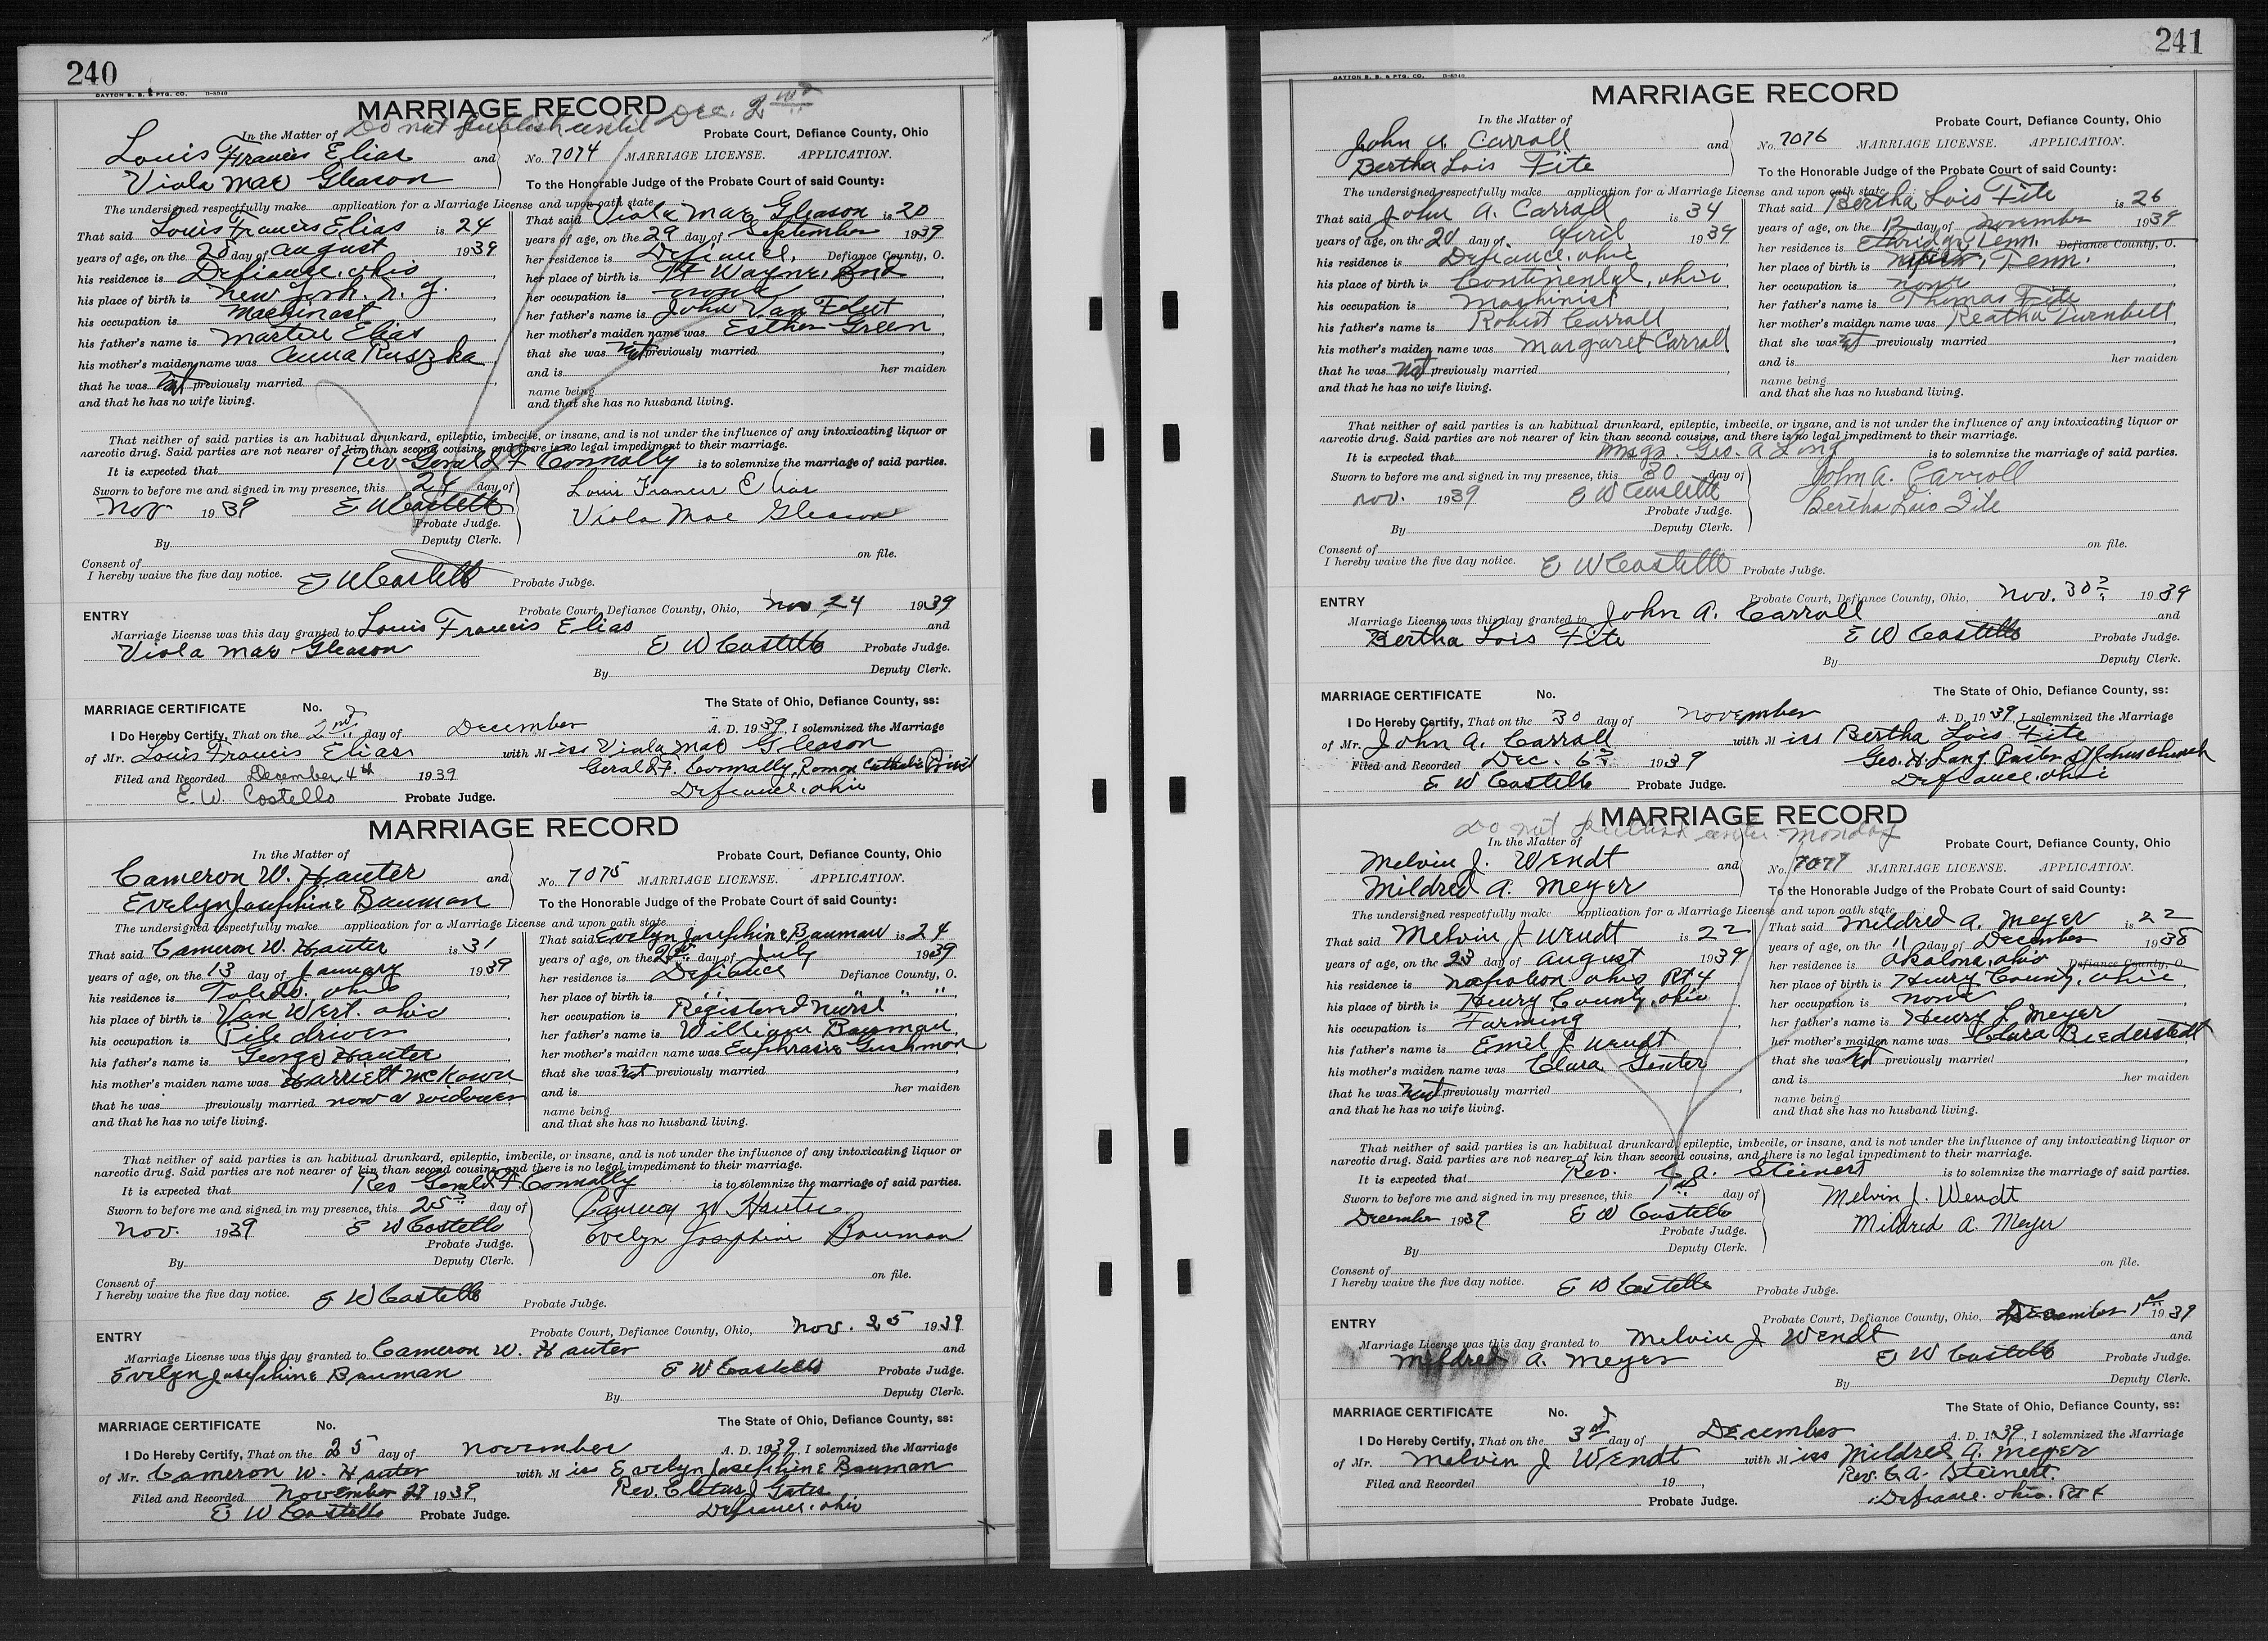 240
DAYTON B. B. & PTG. CO. D-8240
MARRIAGE RECORD
Do not publish until Dec. 2nd
In the Matter of
Probate Court, Defiance County, Ohio
Louis Francis Elias and
No. 7074 MARRIAGE LICENSE. APPLICATION.
Viola Mae Gleason
To the Honorable Judge of the Probate Court of said County:
The undersigned respectfully make application for a Marriage License and upon oath state
That said Louis Francis Elias is 24
years of age, on the 20 day of August 1939
his residence is Defiance, Ohio
his place of birth is New York, N. Y.
his occupation is Machinist
his father's name is Martin Elias
his mother's maiden name was Anna Ruszka
that he was not previously married
and that he has no wife living.
That said Viola Mae Gleason is 20
years of age, on the 29 day of September 1939
her residence is Defiance, Defiance County, O.
her place of birth is Ft Wayne, Ind
her occupation is none
her father's name is John Van
her mother's maiden name was Esther Green
that she was not previously married
and is her maiden
name being
and that she has no husband living.
That neither of said parties is an habitual drunkard, epileptic, imbecile, or insane, and is not under the influence of any intoxicating liquor or
narcotic drug. Said parties are not nearer of kin than second cousins, and there is no legal impediment to their marriage.
It is expected that Rev Gerald F Connolly is to solemnize the marriage of said parties.
Sworn to before me and signed in my presence, this 24 day of
Nov 1939 E W Costello
Probate Judge.
By Deputy Clerk.
Louis Francis Elias
Viola Mae Gleason
Consent of on file.
I hereby waive the five day notice. E W Costello Probate Jubge.
ENTRY Probate Court, Defiance County, Ohio, Nov 24 1939
Marriage License was this day granted to Louis Francis Elias and
Viola Mae Gleason E W Costello Probate Judge.
By Deputy Clerk.
MARRIAGE CERTIFICATE No. The State of Ohio, Defiance County, ss:
I Do Hereby Certify, That on the 2nd day of December A. D. 1939, I solemnized the Marriage
of Mr. Louis Francis Elias with Miss Viola Mae Gleason
Filed and Recorded December 4th 1939 Gerald F. Connolly, Roman Catholic Priest
E. W. Costello Probate Judge. Defiance, Ohio
MARRIAGE RECORD
In the Matter of
Probate Court, Defiance County, Ohio
Cameron W. Hauter and
No. 7075 MARRIAGE LICENSE. APPLICATION.
Evelyn Josephine Bauman
To the Honorable Judge of the Probate Court of said County:
The undersigned respectfully make application for a Marriage License and upon oath state
That said Cameron W. Hauter is 31
years of age, on the 13 day of January 1939
his residence is Toledo, Ohio
his place of birth is Van Wert, Ohio
his occupation is Pile driver
his father's name is George Hauter
his mother's maiden name was Harriett McKown
that he was previously married now a widower
and that he has no wife living.
That said Evelyn Josephine Bauman is 24
years of age, on the day of July 1939
her residence is Defiance Defiance County, O.
her place of birth is " " "
her occupation is Registered Nurse
her father's name is William Bauman
her mother's maiden name was Euphrasie Gushmon
that she was not previously married
and is her maiden
name being
and that she has no husband living.
That neither of said parties is an habitual drunkard, epileptic, imbecile, or insane, and is not under the influence of any intoxicating liquor or
narcotic drug. Said parties are not nearer of kin than second cousins, and there is no legal impediment to their marriage.
It is expected that Rev Gerald F Connolly is to solemnize the marriage of said parties.
Sworn to before me and signed in my presence, this 25 day of
Nov. 1939 E W Costello
Probate Judge.
By Deputy Clerk.
Cameron W Hauter
Evelyn Josephine Bauman
Consent of on file.
I hereby waive the five day notice. E W Costello Probate Jubge.
ENTRY Probate Court, Defiance County, Ohio, Nov. 25 1939
Marriage License was this day granted to Cameron W. Hauter and
Evelyn Josephine Bauman E W Costello Probate Judge.
By Deputy Clerk.
MARRIAGE CERTIFICATE No. The State of Ohio, Defiance County, ss:
I Do Hereby Certify, That on the 25 day of November A. D. 1939, I solemnized the Marriage
of Mr. Cameron W. Hauter with Miss Evelyn Josephine Bauman
Filed and Recorded November 27 1939, Rev. Cletus J Gates
E W Costello Probate Judge. Defiance, Ohio
241
DAYTON B. B. & PTG. CO. D-8240
MARRIAGE RECORD
In the Matter of
Probate Court, Defiance County, Ohio
John A. Carroll and
No. 7076 MARRIAGE LICENSE. APPLICATION.
Bertha Lois Fite
To the Honorable Judge of the Probate Court of said County:
The undersigned respectfully make application for a Marriage License and upon oath state
That said John A. Carroll is 34
years of age, on the 20 day of April 1939
his residence is Defiance, Ohio
his place of birth is Continental, Ohio
his occupation is Machinist
his father's name is Robert Carroll
his mother's maiden name was Margaret Carroll
that he was not previously married
and that he has no wife living.
That said Bertha Lois Fite is 26
years of age, on the 12 day of November 1939
her residence is Tenn. Defiance County, O.
her place of birth is Tenn.
her occupation is none
her father's name is Thomas Fite
her mother's maiden name was Reatha Turnbell
that she was not previously married
and is her maiden
name being
and that she has no husband living.
That neither of said parties is an habitual drunkard, epileptic, imbecile, or insane, and is not under the influence of any intoxicating liquor or
narcotic drug. Said parties are not nearer of kin than second cousins, and there is no legal impediment to their marriage.
It is expected that Msgr. Geo. A Long is to solemnize the marriage of said parties.
Sworn to before me and signed in my presence, this 30 day of
Nov. 1939 E W Costello
Probate Judge.
By Deputy Clerk.
John A. Carroll
Bertha Lois Fite
Consent of on file.
I hereby waive the five day notice. E W Costello Probate Jubge.
ENTRY Probate Court, Defiance County, Ohio, Nov. 30 1939
Marriage License was this day granted to John A. Carroll and
Bertha Lois Fite E W Costello Probate Judge.
By Deputy Clerk.
MARRIAGE CERTIFICATE No. The State of Ohio, Defiance County, ss:
I Do Hereby Certify, That on the 30 day of November A. D. 1939, I solemnized the Marriage
of Mr. John A. Carroll with Miss Bertha Lois Fite
Filed and Recorded Dec. 6 1939 Geo. H. Lang Pastor St Johns Church
E W Costello Probate Judge. Defiance, Ohio
MARRIAGE RECORD
Do not publish until Monday
In the Matter of
Probate Court, Defiance County, Ohio
Melvin J. Wendt and
No. 7077 MARRIAGE LICENSE. APPLICATION.
Mildred A. Meyer
To the Honorable Judge of the Probate Court of said County:
The undersigned respectfully make application for a Marriage License and upon oath state
That said Melvin J Wendt is 22
years of age, on the 23 day of August 1939
his residence is Napoleon, Ohio Rt 4
his place of birth is Henry County, Ohio
his occupation is Farming
his father's name is Emil J Wendt
his mother's maiden name was Clara Genter
that he was not previously married
and that he has no wife living.
That said Mildred A. Meyer is 22
years of age, on the 11 day of December 1938
her residence is Okalona, Ohio Defiance County, O.
her place of birth is Henry County, Ohio
her occupation is none
her father's name is Henry L Meyer
her mother's maiden name was Clara Biederstedt
that she was not previously married
and is her maiden
name being
and that she has no husband living.
That neither of said parties is an habitual drunkard, epileptic, imbecile, or insane, and is not under the influence of any intoxicating liquor or
narcotic drug. Said parties are not nearer of kin than second cousins, and there is no legal impediment to their marriage.
It is expected that Rev. C. A. Steinert is to solemnize the marriage of said parties.
Sworn to before me and signed in my presence, this 1st day of
December 1939 E W Costello
Probate Judge.
By Deputy Clerk.
Melvin J. Wendt
Mildred A. Meyer
Consent of on file.
I hereby waive the five day notice. E W Costello Probate Jubge.
ENTRY Probate Court, Defiance County, Ohio, December 1st 1939
Marriage License was this day granted to Melvin J Wendt and
Mildred A. Meyer E W Costello Probate Judge.
By Deputy Clerk.
MARRIAGE CERTIFICATE No. The State of Ohio, Defiance County, ss:
I Do Hereby Certify, That on the 3rd day of December A. D. 1939, I solemnized the Marriage
of Mr. Melvin J Wendt with Miss Mildred A. Meyer
Filed and Recorded 19 , Rev. C. A. Steinert.
Probate Judge. Defiance, Ohio. Rt 4